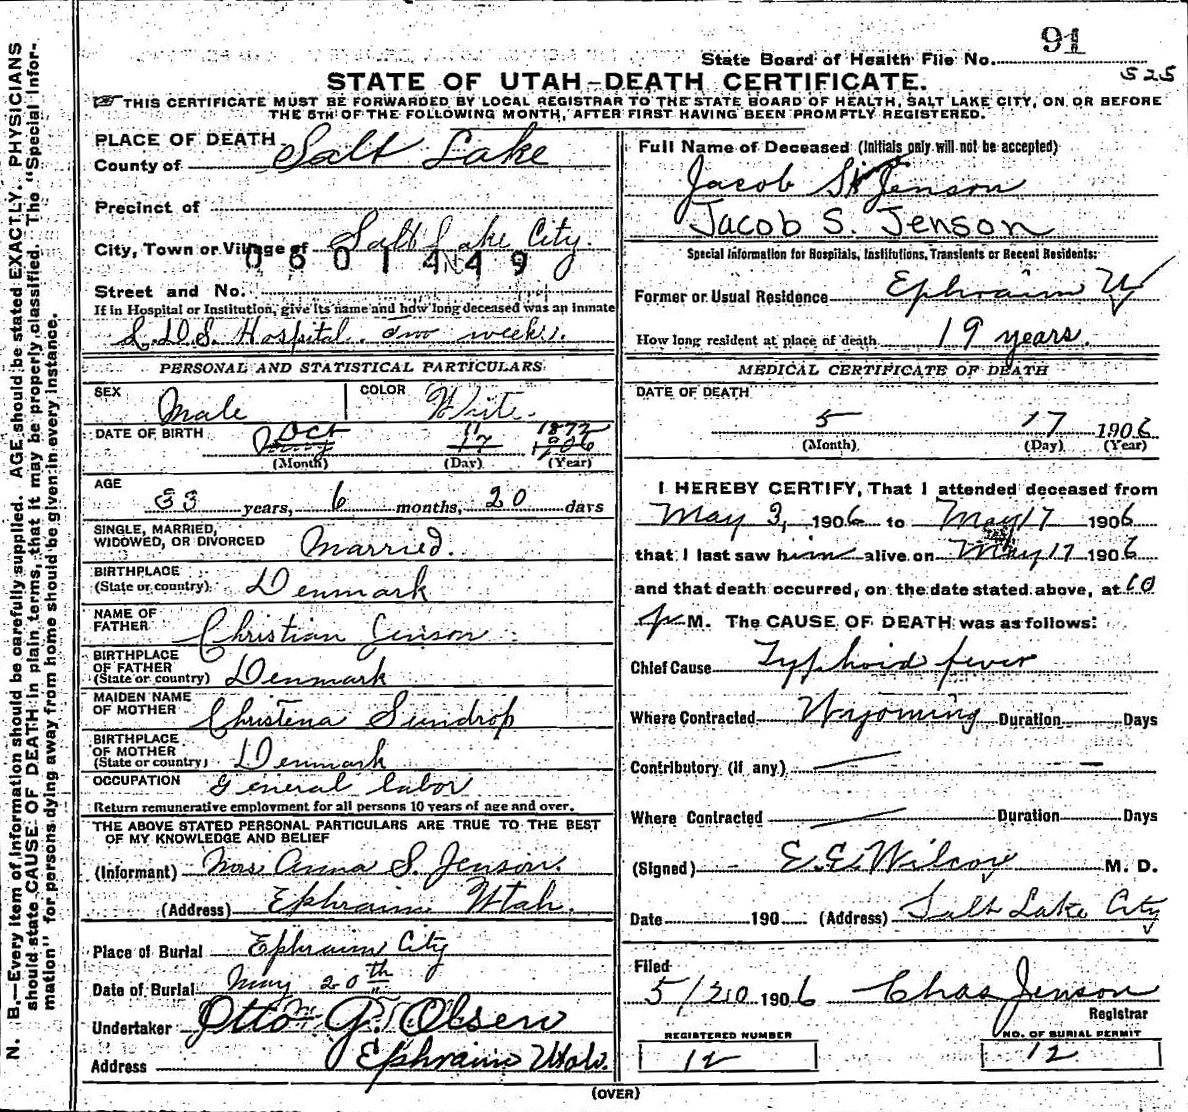 N. B.—Every item of information should be carefully supplied. AGE should be stated EXACTLY. PHYSICIANS
should state CAUSE OF DEATH in plain terms, that it may be properly classified. The "Special Infor-
mation" for persons dying away from home should be given in every instance.
91
State Board of Health File No.
525
STATE OF UTAH—DEATH CERTIFICATE.
THIS CERTIFICATE MUST BE FORWARDED BY LOCAL REGISTRAR TO THE STATE BOARD OF HEALTH, SALT LAKE CITY, ON OR BEFORE
THE 5TH OF THE FOLLOWING MONTH, AFTER FIRST HAVING BEEN PROMPTLY REGISTERED.
PLACE OF DEATH
County of Salt Lake
Precinct of
City, Town or Village of Salt Lake City.
0601449
Street and No.
If in Hospital or Institution, give its name and how long deceased was an inmate
L.D.S. Hospital. two weeks.
PERSONAL AND STATISTICAL PARTICULARS
SEX Male COLOR White.
DATE OF BIRTH Oct 11 1872
17 1906
(Month) (Day) (Year)
AGE
33 years, 6 months, 20 days
SINGLE, MARRIED,
WIDOWED, OR DIVORCED Married.
BIRTHPLACE
(State or country) Denmark
NAME OF
FATHER Christian Jenson
BIRTHPLACE
OF FATHER
(State or country) Denmark
MAIDEN NAME
OF MOTHER Christena Sundrop
BIRTHPLACE
OF MOTHER
(State or country) Denmark
OCCUPATION General labor
Return remunerative employment for all persons 10 years of age and over.
THE ABOVE STATED PERSONAL PARTICULARS ARE TRUE TO THE BEST
OF MY KNOWLEDGE AND BELIEF
(Informant) Mrs Anna S. Jenson.
(Address) Ephraim Utah.
Place of Burial Ephraim City
Date of Burial May 20th
Undertaker Otto G. Olsen
Address Ephraim Utah.
Full Name of Deceased (Initials only will not be accepted)
Jacob Jenson
Jacob S. Jenson
Special Information for Hospitals, Institutions, Transients or Recent Residents:
Former or Usual Residence Ephraim U
How long resident at place of death 19 years.
MEDICAL CERTIFICATE OF DEATH
DATE OF DEATH
5 17 1906
(Month) (Day) (Year)
I HEREBY CERTIFY, That I attended deceased from
May 3, 1906 to May 17 1906
that I last saw him alive on May 17 1906
and that death occurred, on the date stated above, at 10
P M. The CAUSE OF DEATH was as follows:
Chief Cause Typhoid fever
Where Contracted Wyoming Duration Days
Contributory (if any)
Where Contracted Duration Days
(Signed) E. E. Wilcox M. D.
Date 190 (Address) Salt Lake City
Filed
5/20 1906 Chas Jenson
Registrar
REGISTERED NUMBER
12
NO. OF BURIAL PERMIT
12
(OVER)